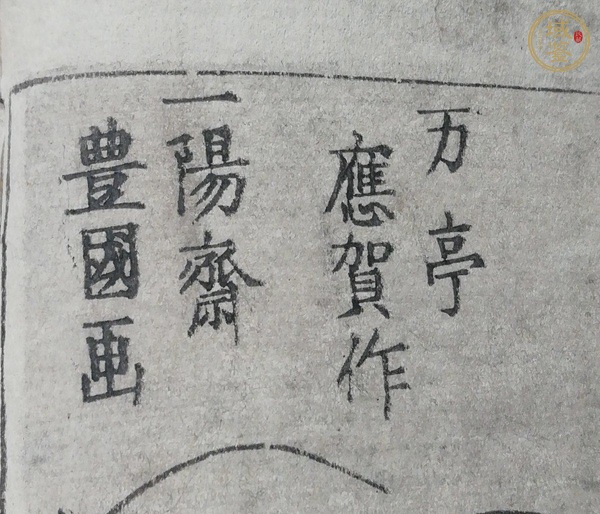 万亭
應賀作
一陽齋
豊國画